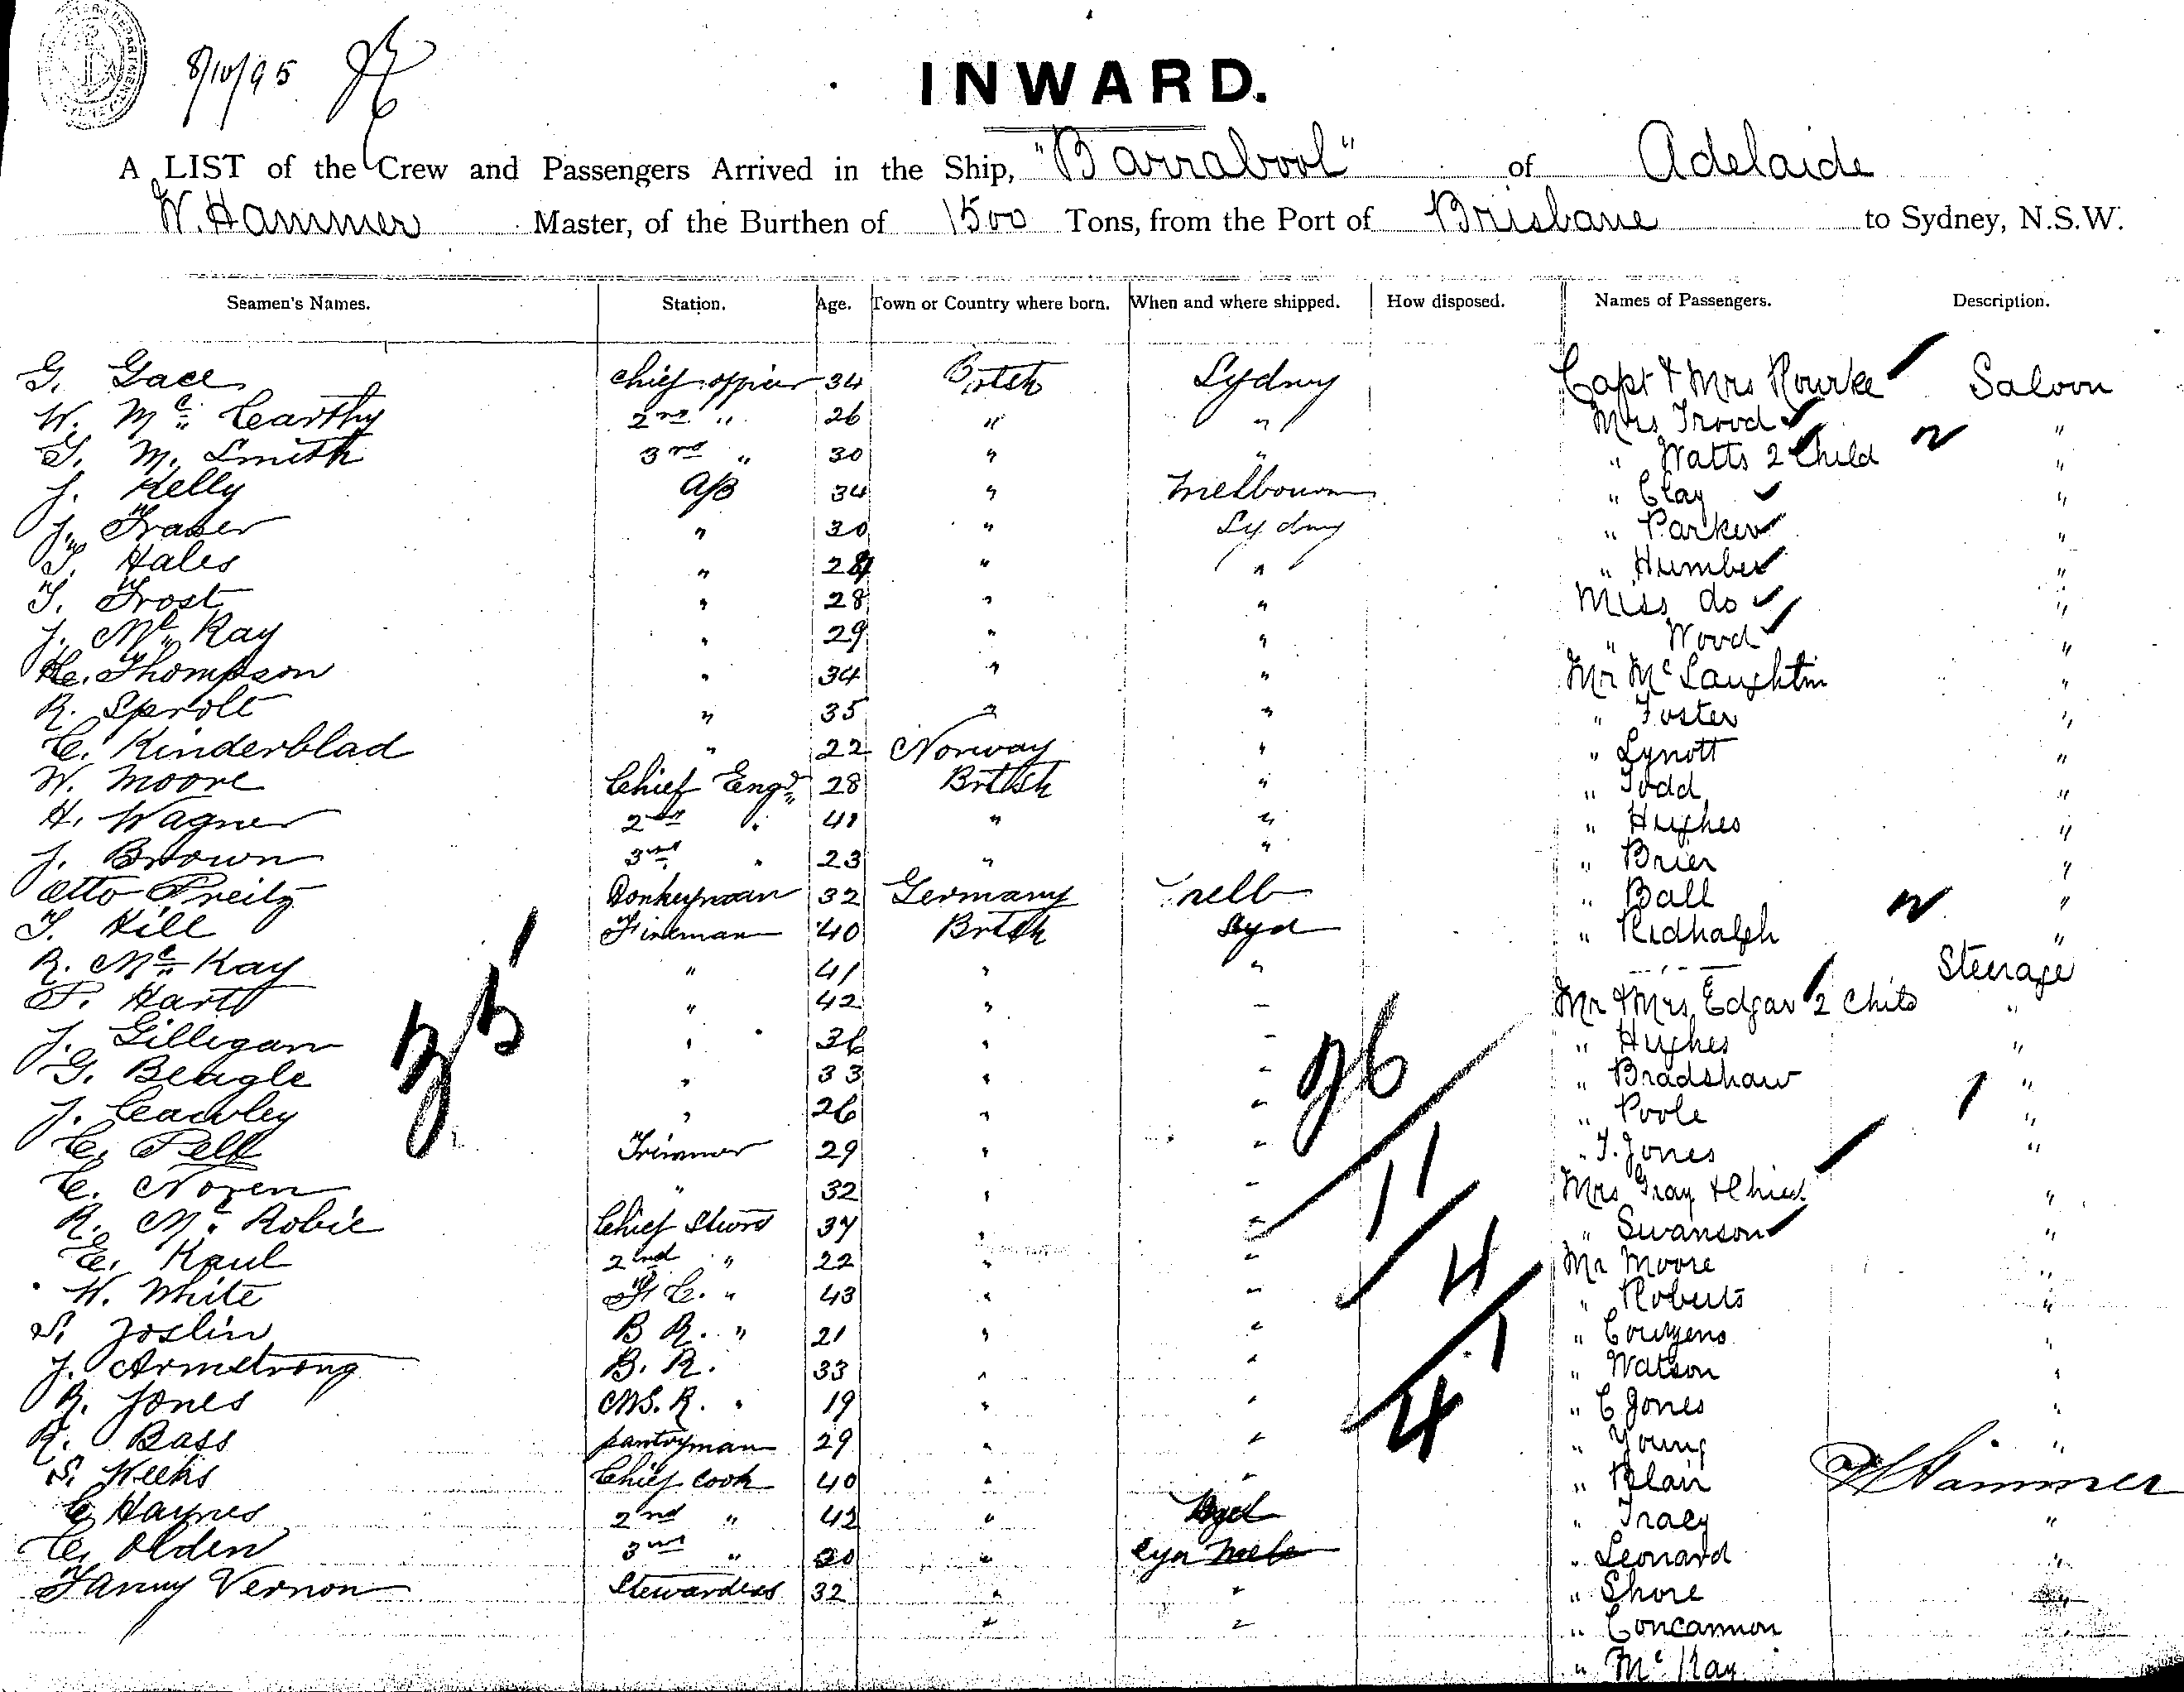 8/10/95
INWARD.
A LIST of the Crew and Passengers Arrived in the Ship, "Barrabool" of Adelaide
W. Hammer Master, of the Burthen of 1500 Tons, from the Port of Brisbane to Sydney, N.S.W.
Seamen's Names. Station. Age. Town or Country where born. When and where shipped. How disposed. Names of Passengers. Description.
G. Gace Chief officer 34 British Sydney Capt & Mrs Rourke Saloon
W. Mc Carthy 2nd " 26 " " Mrs Trood "
G. M. Smith 3rd " 30 " " " Watts 2 Child "
J. Kelly A/B 34 " Melbourne " Clay "
J. Fraser " 30 " Sydney " Parker "
T. Hales " 28 " " " Humber "
T. Frost " 28 " " Miss do "
J. Mc Kay " 29 " " " Wood "
He. Thompson " 34 " " Mr McLaughlin "
R. Sprolt " 35 " " " Foster "
C. Kinderblad " 22 Norway " " Lynott "
W. Moore Chief Engr 28 British " " Todd "
H. Wagner 2nd " 41 " " " Hughes "
J. Brown 3rd " 23 " " " Brier "
Otto Preitz Donkeyman 32 Germany Melb " Ball "
T. Hill Fireman 40 British Syd " Ridhalgh "
R. Mc Kay " 41 " " Steerage
P. Hart " 42 " " Mr & Mrs Edgar 2 Chils "
J. Gilligan " 36 " " " Hughes "
G. Beagle " 33 " " " Bradshaw "
J. Cawley " 26 " " " Poole "
C. Pell Trimmer 29 " " " T. Jones "
C. Noren " 32 " " Mrs Gray & Child "
R. Mc Robie Chief Stwd 37 " " " Swanson "
E. Kaul 2nd " 22 " " Mr Moore "
W. White F. C. " 43 " " " Roberts "
S. Joslin B R. " 21 " " " Couzens "
J. Armstrong B. R. 33 " " " Watson "
R. Jones MS. R. " 19 " " " C Jones "
R. Bass pantryman 29 " " " Young "
S. Weeks Chief Cook 40 " " " Blair
W Hammer
C Haynes 2nd " 42 " Syd " Tracy "
C. Olden 3rd " 20 " Syd Melb " Leonard "
Fanny Vernon Stewardess 32 " " " Shore "
" " " Concannon "
" Mc Kay
35
26
11
4
1
4